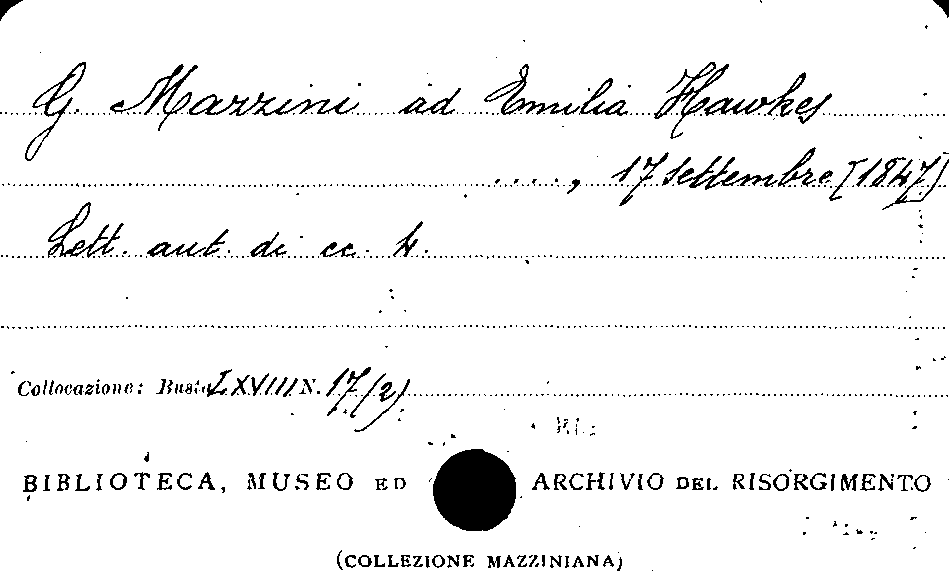 G. Mazzini ad Emilia Hawkes
...., 17 settembre [1847]
Lett. aut. di cc. 4.
Collocazione: Busta LXVIII N. 17/(2)
BIBLIOTECA, MUSEO ED ARCHIVIO DEL RISORGIMENTO
(COLLEZIONE MAZZINIANA)